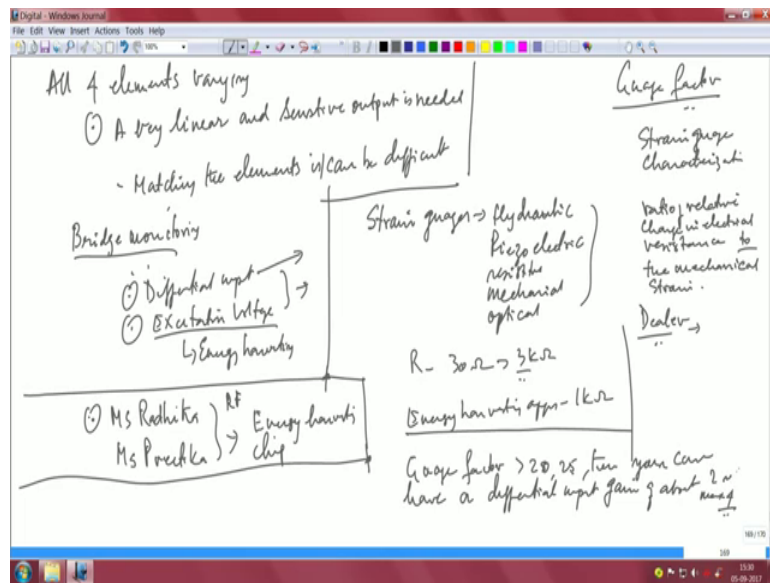 Digital - Windows Journal
File Edit View Insert Actions Tools Help
100%
All 4 elements varying
A very linear and sensitive output is needed
- Matching the elements is/can be difficult
Bridge monitoring
Differential input
Excitation Voltage
Energy harvesting
Ms Radhika
Ms Preetika
RF
Energy harvesting
chip
Strain guages → Hydraulic
Piezo electric
resistive
mechanical
optical
R - 30 Ω → 3 kΩ
Energy harvesting apps - 1 kΩ
Guage factor > 20, 25, then you can
have a differential input gain of about 2
Guage factor
Strain guage
Characterizati
ratio of relative
Change in electrical
resistance to
the mechanical
Strain.
Dealer →
169/170
169
15:30
05-09-2017